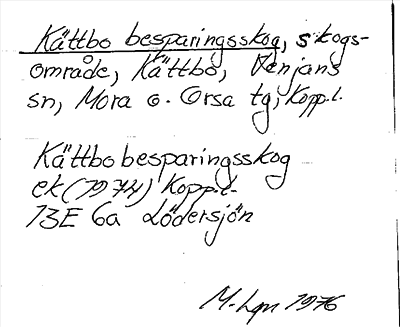 Kättbo besparingsskog, skogs-
område, Kättbo, Venjans
sn, Mora o. Orsa tg, Kopp.l.
Kättbo besparingsskog
ek (1974) Kopp.l.
13E 6a Lödersjön
M-Lgn 1976